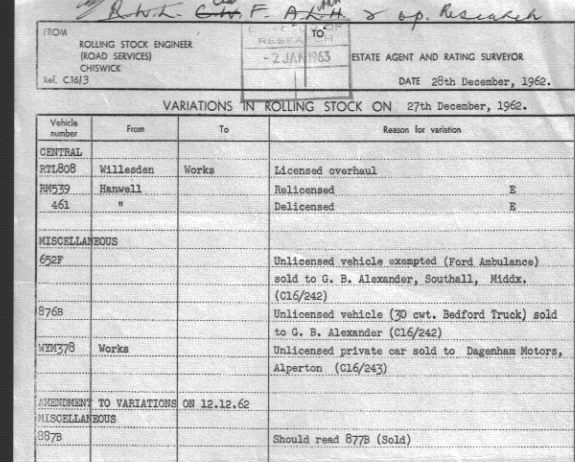 R.W.L. F. A.L.H. & Op. Research
FROM
ROLLING STOCK ENGINEER
(ROAD SERVICES)
CHISWICK
Ref. C16/3
RESEARCH
-2 JAN 1963
TO
ESTATE AGENT AND RATING SURVEYOR
DATE 28th December, 1962.
VARIATIONS IN ROLLING STOCK ON 27th December, 1962.
Vehicle number From To Reason for variation
CENTRAL
RTL808 Willesden Works Licensed overhaul
RM539 Hanwell Relicensed E
461 " Delicensed E
MISCELLANEOUS
652F Unlicensed vehicle exempted (Ford Ambulance)
sold to G. B. Alexander, Southall, Middx.
(C16/242)
876B Unlicensed vehicle (30 cwt. Bedford Truck) sold
to G. B. Alexander (C16/242)
WYM378 Works Unlicensed private car sold to Dagenham Motors,
Alperton (C16/243)
AMENDMENT TO VARIATIONS ON 12.12.62
MISCELLANEOUS
887B Should read 877B (Sold)